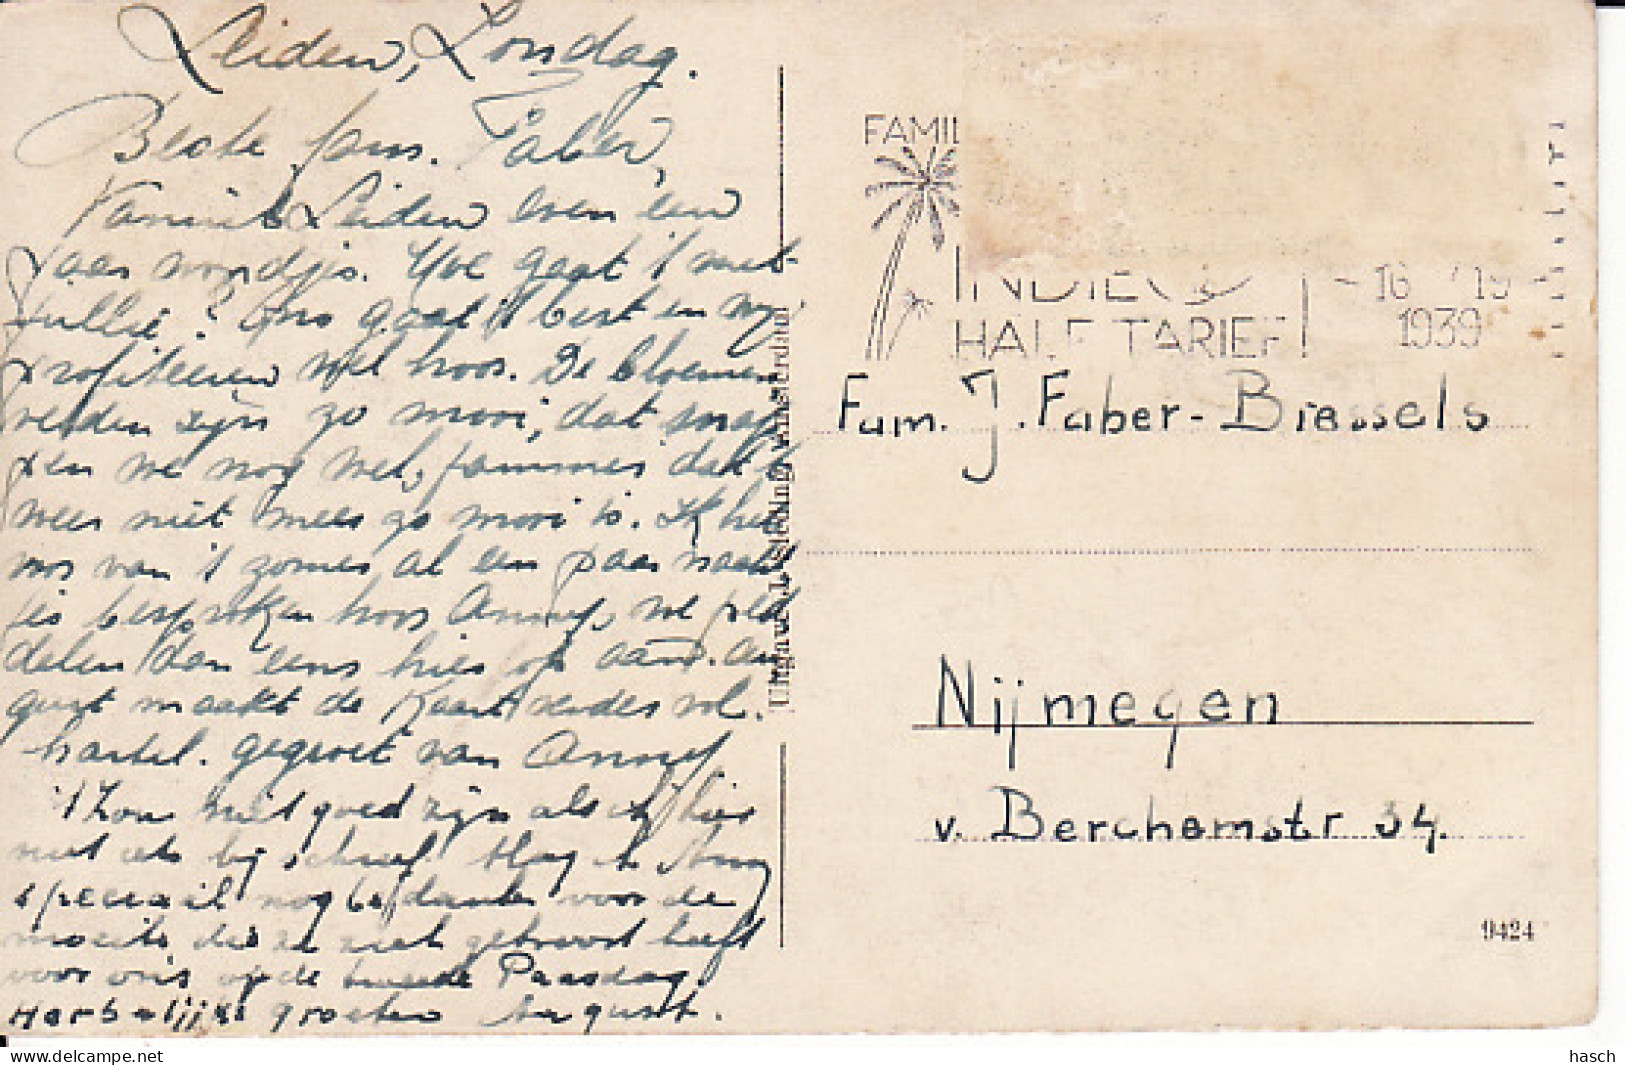 Leiden, Zondag.
Beste fam. Faber,
Vanuit Leiden even een
paar woordjes. Hoe gaat 't met
jullie? Ons gaat 't best en wij
profiteeren wel hoor. De bloemen
velden zijn zo mooi, dat snap
pen we nog wel, jammer dat 't
weer niet mee zo mooi is. Ik heb
voor van 't zomer al een paar nacht
jes besproken hoor Anny, we ped
delen dan eens hier op aan. Au
gust maakt de kaart verder vol.
hartel. gegroet van Anny
't Zou niet goed zijn als ik hier
niet iets bij schreef. Mag ik Anny
speciaal nog bedanken voor de
moeite die ze zich getroost heeft
voor ons op de tweede Paasdag.
Hartelijke groeten August.
Uitgave J. SLEDING, Amsterdam
FAMIL
INDIË
HALF TARIEF!
16
1939
Fam. J. Faber-Bressels
Nijmegen
v. Berchemstr 34.
9424
hasch